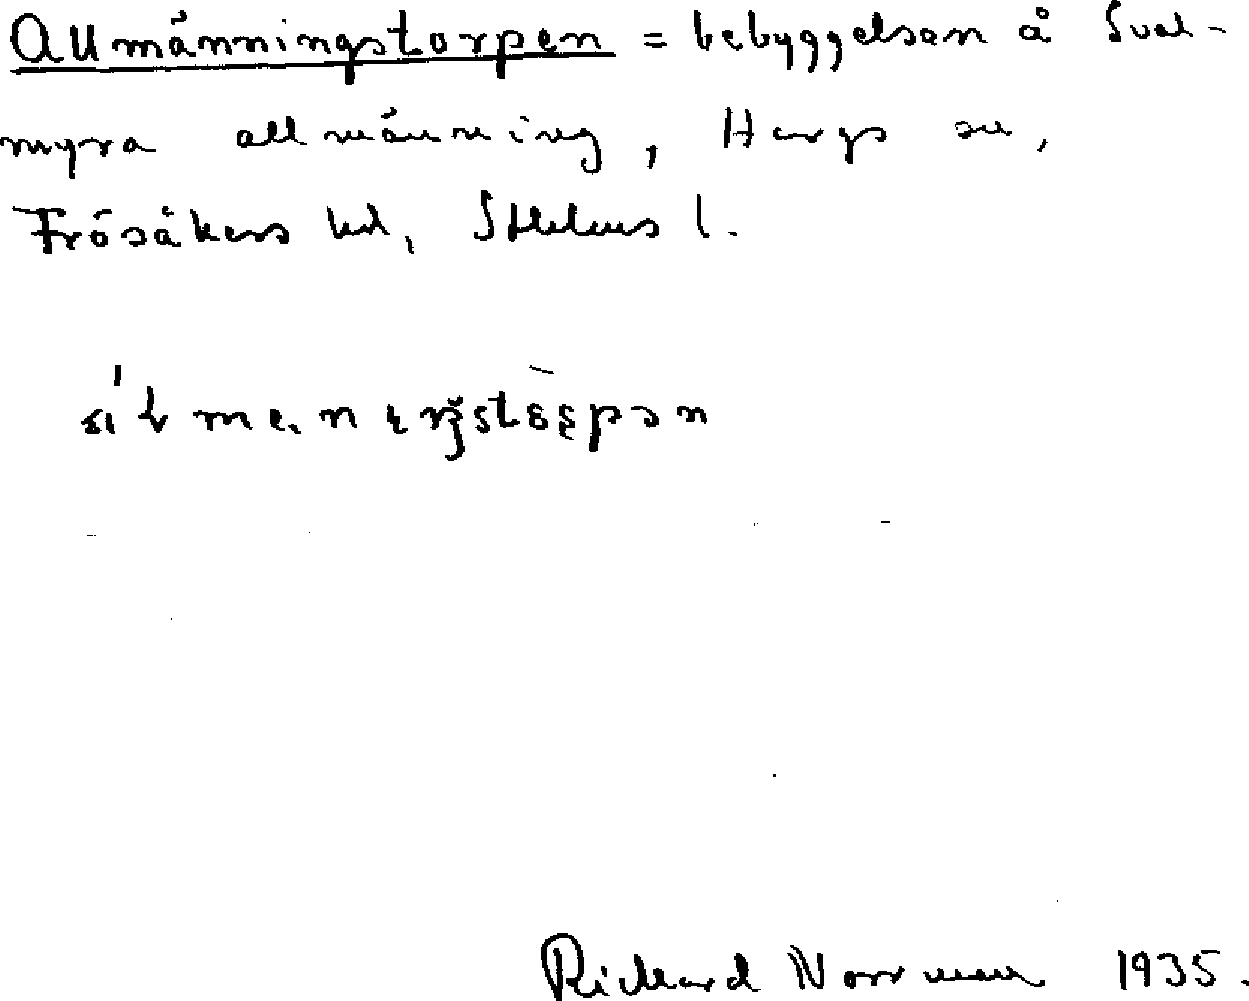 Allmänningstorpen = bebyggelsen å Sval-
myra allmänning, Hargs sn,
Frösåkers hd, Sthlms l.
Richard Norrman 1935.